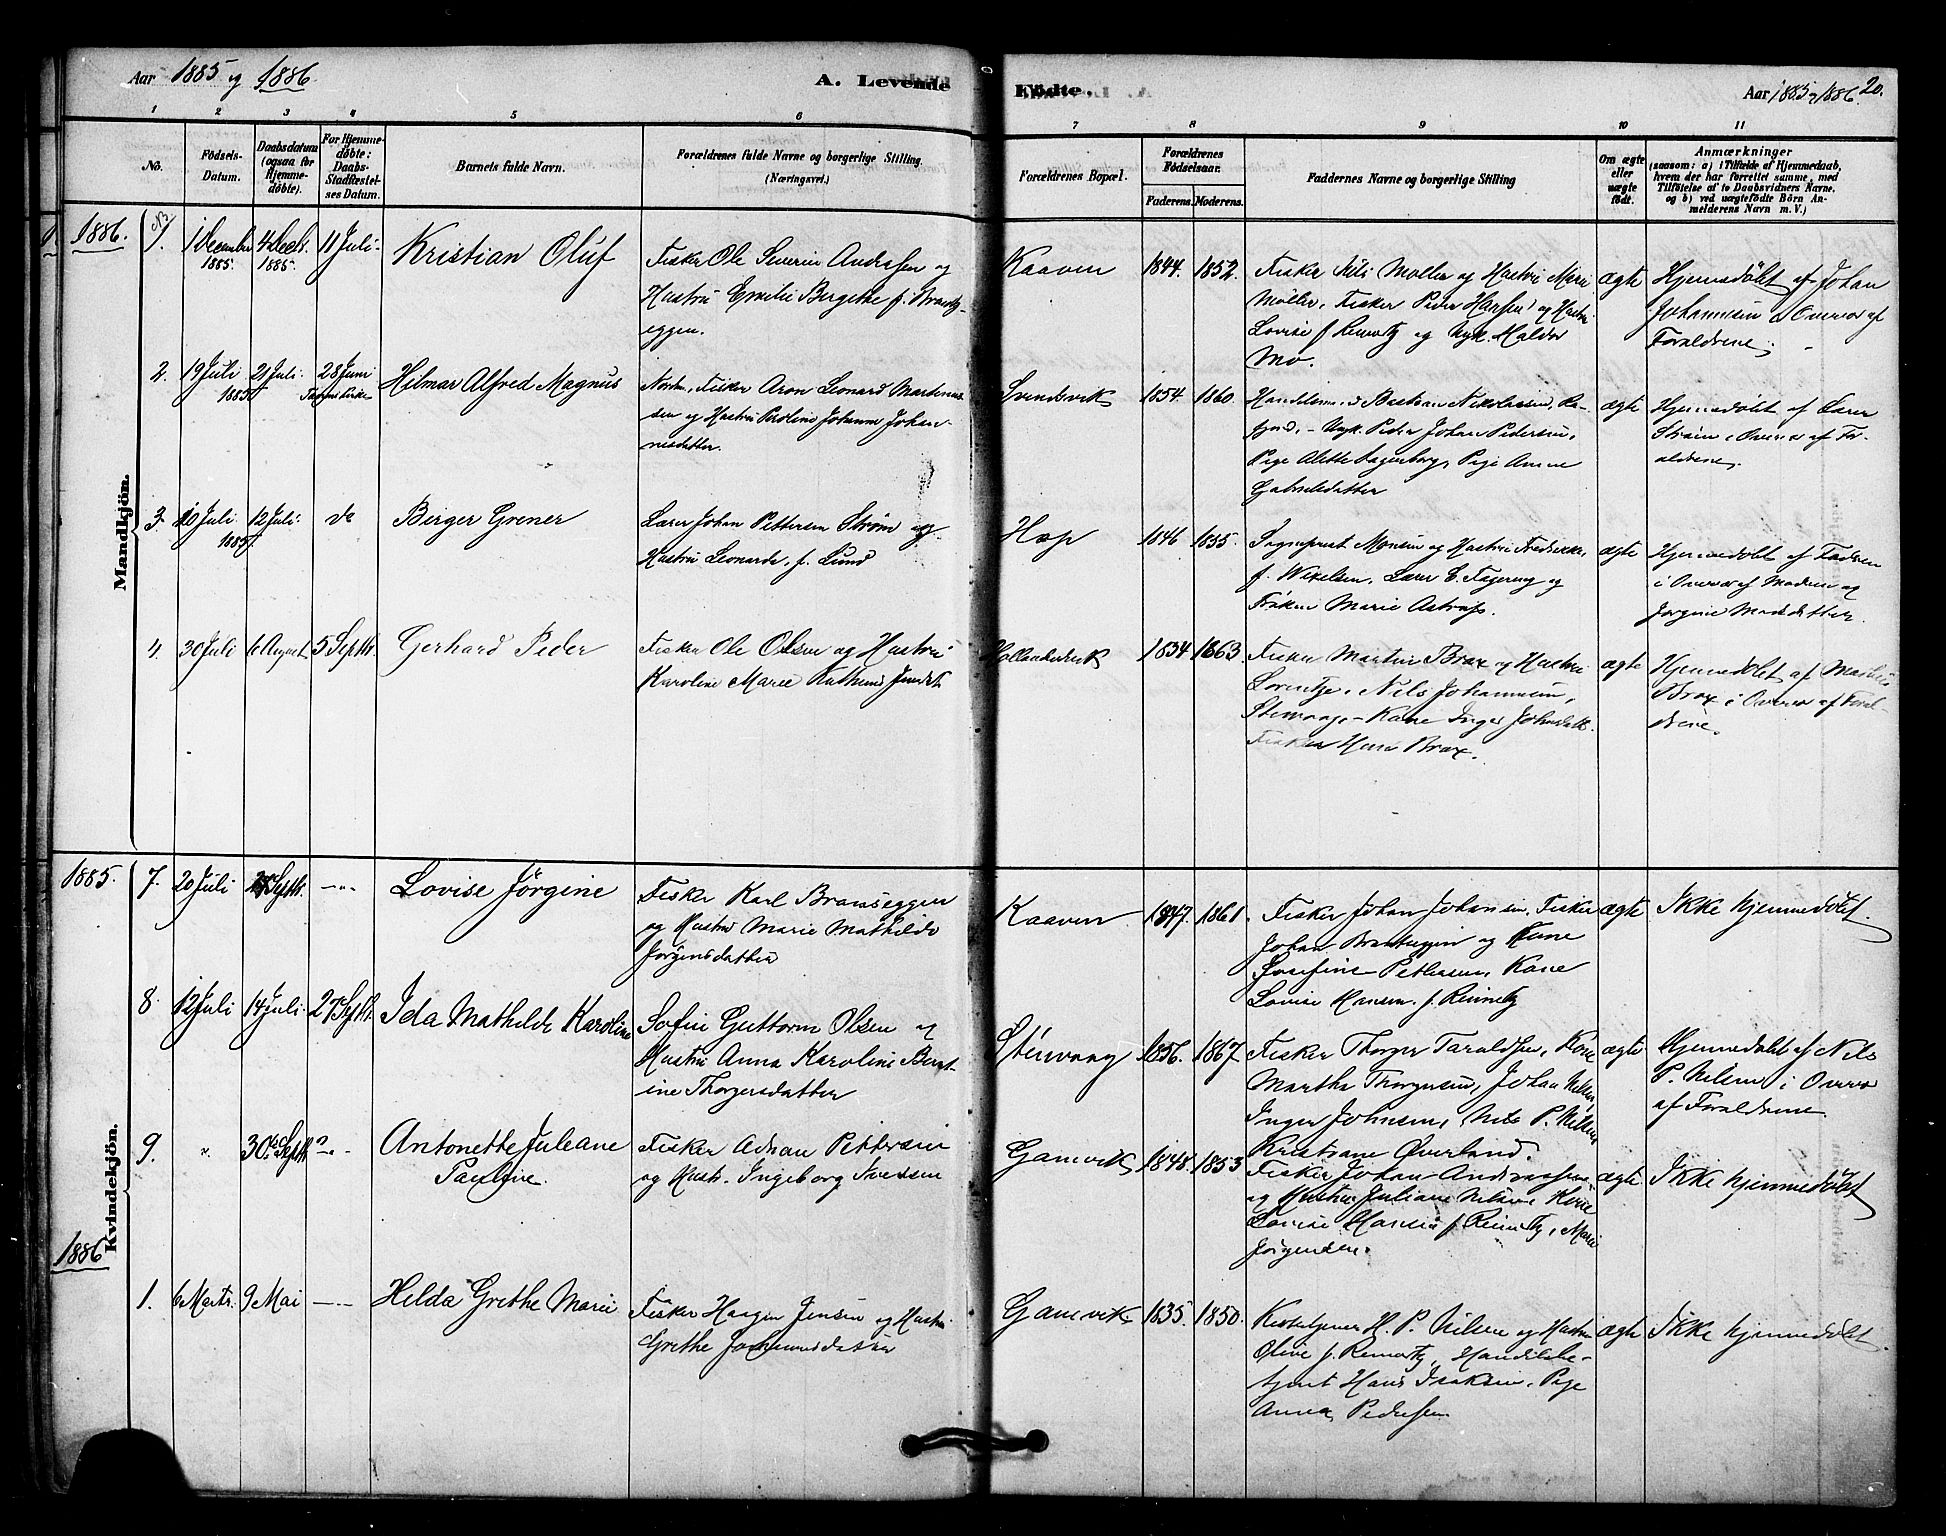 Aar 1885 og 1886.
A. Levende
Fødte.
Aar 1885 og 1886. 20.
1 2 3 4 5 6 7 8 9 10 11
No.
Födsels-
Datum.
Daabsdatum
(ogsaa for
Hjemme-
döbte).
For Hjemme-
döbte:
Daabs-
Stadfæstel-
ses Datum.
Barnets fulde Navn.
Forældrenes fulde Navne og borgerlige Stilling.
(Næringsvei.)
Forældrenes Bopæl.
Forældrenes
Födselsaar.
Faderens. Moderens.
Faddernes Navne og borgerlige Stilling
Om ægte
eller
uægte
födt.
Anmærkninger
(saasom: a) i Tilfælde af Hjemmedaab,
hvem der har forrettet samme, med
Tilföielse af to Daabsvidners Navne.
og b) ved uægtefödte Börn An-
melderens Navn m. V.)
Mandkjön.
1886. 1. 1 December 1885. 4 Decb. 1885. 11 Juli Kristian Oluf
Fisker Ole Severin Andrassen og
Hustru Emilie Birgithe f. Brants-
eggen.
Kaaven 1844. 1852.
Fisker Nils Møller og Hustru Marie
Møller, Fisker Peder Hansen og Hustru
Lovise f. Remertz og Ungk. Haldor
Mo.
ægte
Hjemmedøbt af Johan
Johannesen i Overvær af
Forældrene.
2. 19 Juli 1885 21 Juli 28 Juni Hilmar Alfred Magnus
Norsk, Fisker Aron Leonard Martinus-
sen og Hustru Peroline Johanna Johan-
nesdatter.
Svendsvik 1854. 1860.
Handelsm. Bastian Nikolaisen,
fjord, - Ungk. Peder Johan Pedersen,
Pige Alette Lagenborg, Pige Anne
Gabrielsdatter
ægte
Hjemmedøbt af Lærer
Strøm i Overvær af For-
ældrene.
3. 10 Juli 1885. 12 Juli. do Birger Grener
Lærer Johan Pettersen Strøm og
Hustru Leonarda, f. Lund
Hop 1846 1855.
Sognepræst Monsen og Hustru Fredrikke,
f. Wexelsen, Lærer E. Fagereng og
Frøken Marie Astrup.
ægte
Hjemmedøbt af Faderen
i Overvær af Moderen og
Jørgine Madsdatter.
4. 30 Juli 6 August 5 Septbr. Gerhard Peder
Fisker Ole Olsen og Hustru
Karoline Marie
1834 1863
Fisker Martin Brox og Hustru
Lorentze, Nils Johannesen,
Stenvaag - Kone Inger Johnsdatt.
Fisker Hans Brox.
ægte
Hjemmedøbt af Martin
Brox i Overvær af Foræl-
drene.
Kvindekjön.
1885. 7. 20 Juli Septbr. -"- Lovise Jørgine
Fisker Karl Brandseggen
og Hustru Marie Mathilde
Jørgensdatter
Kaaven 1847. 1861.
Fisker Johan Johansen, Fisker
Johan Brantseggen og Kone
Josefine Pettersen, Kone
Lovise Hansen f. Remertz
ægte
Ikke hjemmedøbt.
8. 12 Juli 14 Juli 27 Septbr. Ida Mathilde Karoline
Sofin Guttorm Olsen og
Hustru Anna Karoline Bernt-
ine Thorgersdatter
Stenvaag 1856. 1867.
Fisker Thorger Taraldsen, Kone
Martha Thorgersen, Johan Nilsen,
Inger Johnsen, Nils P. Nilsen
Kristiane Øverland.
ægte
Hjemmedøbt af Nils
P. Nilsen i Overvær
af Forældrene
9. " 30 Septbr -"- Antonette Juliane
Pauline.
Fisker Adrian Pettersen
og Hustr. Ingeborg Iversen
Gamvik 1848. 1853
Fisker Johan Andreassen
og Hustru Juliane Nilsen, Kone
Lovise Hansen f. Remertz, Marie
Jørgensen.
ægte.
Ikke hjemmedøbt
1886 1. 6 Marts. 9 Mai -"- Helda Grethe Marie
Fisker Haagen Jensen og Hustru
Grethe Johannesdatter
Gamvik 1835. 1850.
Kirketjener H. P. Nilsen og Hustru
Oline f. Remertz, Handelsbe-
tjent Hans Isaksen, Pige
Anna Pedersen
ægte
Ikke hjemmedøbt.